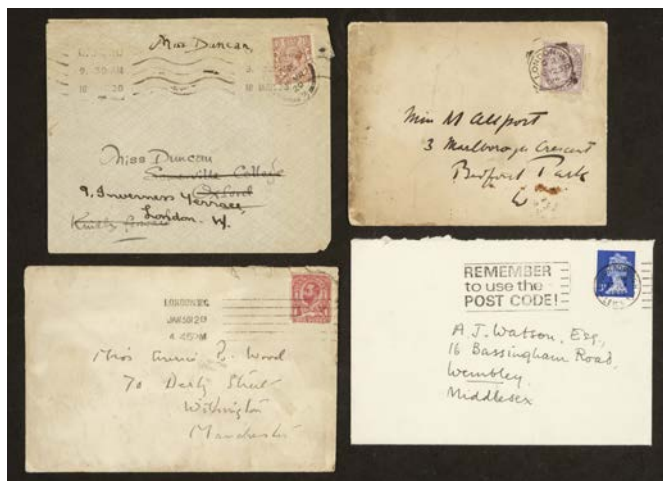 Miss Duncan
9. 30 AM
Miss Duncan
Somerville College
Oxford
9. Inverness Terrace,
London. W.
LONDON. W.
Miss M Allport
3 Marlborough Crescent
Bedford Park
W
LONDON. W.C
JAN 30 12
4. 45 PM
Miss Annie B. Wood
70 Derby Street
Withington
Manchester
REMEMBER
to use the
POST CODE!
A. J. Watson, Esq.,
16 Bassingham Road,
Wembley,
Middlesex